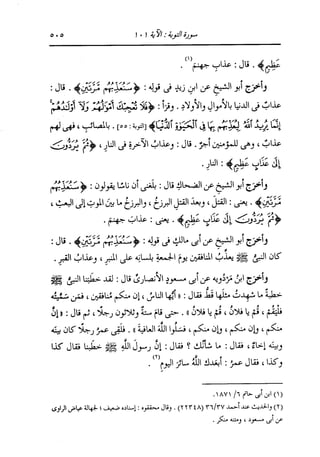 سورة التوبة : الآية ١٠١
٥٠٥
عَظِيمٍ﴾ . قال : عذابِ جهنمَ(١) .
وأخرَج أبو الشيخِ عن ابنِ زيدٍ فى قولِه : ﴿سَنُعَذِّبُهُم مَّرَّتَيْنِ﴾ . قال :
عذابٌ فى الدنيا بالأموالِ والأولادِ . وقرَأ : ﴿فَلَا تُعْجِبْكَ أَمْوَٰلُهُمْ وَلَآ أَوْلَٰدُهُمْ
إِنَّمَا يُرِيدُ ٱللَّهُ لِيُعَذِّبَهُم بِهَا فِى ٱلْحَيَوٰةِ ٱلدُّنْيَا﴾ [التوبة : ٥٥] . بالمصائبِ ، فهى لهم
عذابٌ ، وهى للمؤمنين أجرٌ . قال : وعذابُ الآخرةِ فى النارِ ، ﴿ثُمَّ يُرَدُّونَ
إِلَىٰ عَذَابٍ عَظِيمٍ﴾ : النارِ .
وأخرَج أبو الشيخِ عن الضحاكِ قال : بلغنى أن ناسًا يقولون : ﴿سَنُعَذِّبُهُم
مَّرَّتَيْنِ﴾ . يعنى : القتلَ ، وبعدَ القتلِ البرزخُ ، والبرزخُ ما بينَ الموتِ إلى البعثِ ،
﴿ثُمَّ يُرَدُّونَ إِلَىٰ عَذَابٍ عَظِيمٍ﴾ . يعنى : عذابَ جهنمَ .
وأخرَج أبو الشيخِ عن أبى مالكٍ فى قولِه : ﴿سَنُعَذِّبُهُم مَّرَّتَيْنِ﴾ . قال :
كان النبىُّ ﷺ يعذِّبُ المنافقين يومَ الجمعةِ بلسانِه على المنبرِ ، وعذابُ القبرِ .
وأخرَج ابنُ مَرْدُويَه عن أبى مسعودٍ الأنصارىِّ قال : لقد خطبَنا النبىُّ ﷺ
خطبةً ما شهِدتُ مثلَها قطُّ فقال : «أيُّها الناسُ ، إن منكم منافقين ، فمَن سمَّيتُه
فليقُمْ ، قُمْ يا فلانُ ، قُمْ يا فلانُ» . حتى قام ستةٌ وثلاثون رجلًا ، ثم قال : «إن
منكم ، وإن منكم ، وإن منكم ، فسلُوا اللهَ العافيةَ» . فلَقِى عمرُ رجلًا كان بينَه
وبينَه إخاءٌ ، فقال : ما شأنُك ؟ فقال : إن رسولَ اللهِ ﷺ خطبَنا فقال كذا
وكذا ، فقال عمرُ : أبعدَك اللهُ سائرَ اليومِ(٢) .
(١) ابن أبى حاتم ٦/ ١٨٧١.
(٢) والحديث عند أحمد ٣٦/٣٧ (٢٢٣٤٨) . وقال محققوه : إسناده ضعيف ؛ لجهالة عياض الراوى
عن أبى مسعود ، ومتنه منكر .